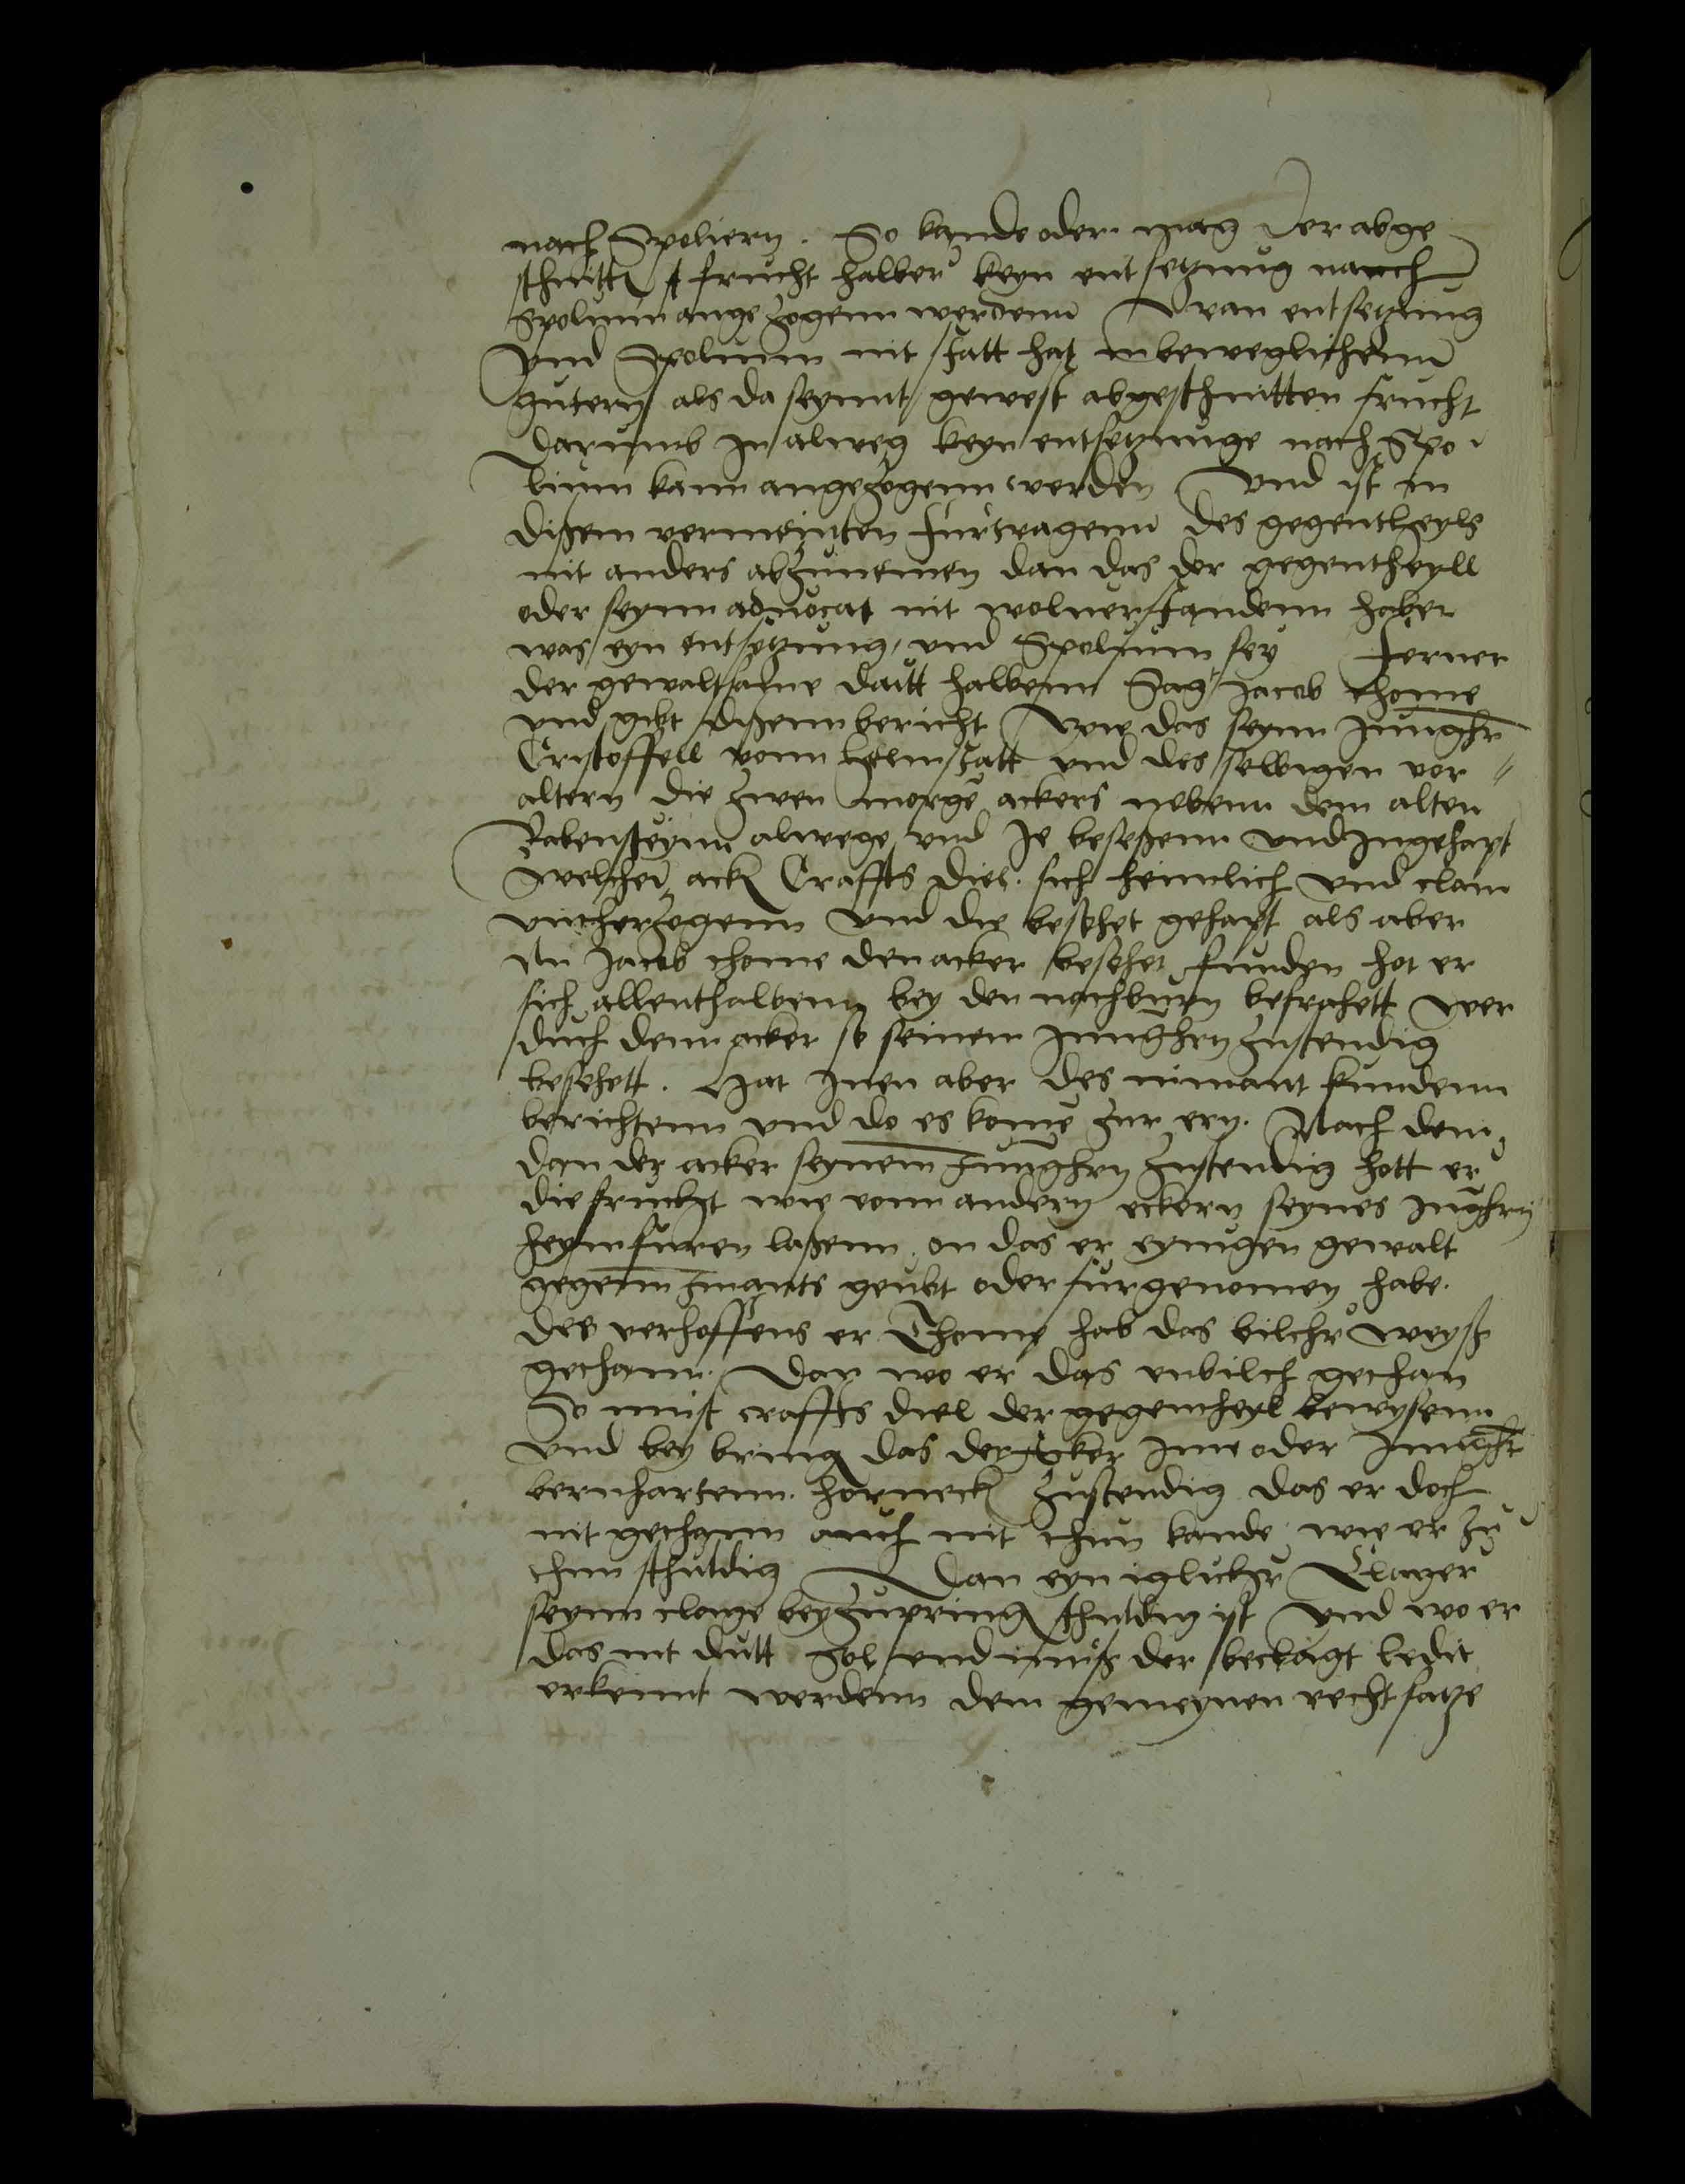 nach Spoliern. So kande oder mag der abge
schnitt frucht halber keyn entsetzung nauch
Spolium angezogenn werdenn Dvan entsetzung
vnd Spolium nit statt hat in beweglichenn
gutern als da seynnt gewest abgeschnitten frucht
Darumb in alweg keyn entsetzunge nach Spo
lium kann angezogenn werden Vnd ist in
dißem vermeinten furtragenn des gegentheyls
nit anders abzunemen dan das der gegentheyll
oder seynn aduocat nit woluerstandenn haben
was eyn entsetzung vnd Spolium sey Ferner
der gewaltsame datt halbenn Sag Jacob thome
vnd gibt dißenn bericht Wie das seynn Junghr
Cristoffell vonn Helmstatt vnd des selbigen vor
altern die zwen morge ackers nebenn dem alten
Rabensteynn alwege vnd Je beseßenn vnd Ingehapt
Welchen ack Craffts diel sich heimlich vnd clam
vntherzogenn vnd die besehet gehapt als aber
An Jacob thome den acker besehet funden hot er
sich allenthalbenn bey den nachburn befrahett wer
duch denn acker so seinem Junghrn zustendig
besehett. Hat Inen aber des nimant kundenn
berichtenn vnd do es kome zur ern. Nach dem
dan der acker seynem Junghrn zustendig hott er
die frucht wie vonn andern eckern seynes Junghrn
heym furen laßenn. on das er eynigen gewalt
gegenn Jmants geubt oder furgenomen habe.
Des verhoffens er Thome hab das bilcher weyß
gethann. Dan wo er das vnbilch gethan
So must craffts diel der gegentheyl bewysenn
vnd bey bring das der Acker Jme oder Junghr
bernhartenn horneck zustendig das er doch
nit gethann auch nit thun kande wie er zu
thun schuldig Dan eyn iglicher Clager
seynn clage bey zupring schuldig ist Vnd wo er
das nit dutt Sol vnd muß der beclagt ledit
erkennt werdenn dem gemeynen recht satze